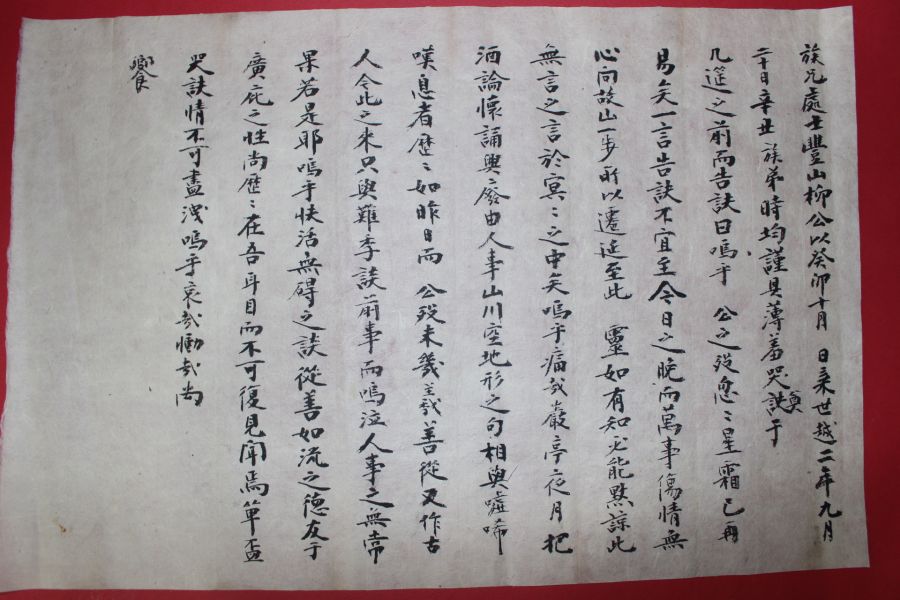 族兄處士豐山柳公以癸卯十月 日棄世越二年九月
二十日辛丑族弟時均謹具薄羞哭訣奠于
几筵之前而告訣曰嗚乎 公之歿怱〻星霜已再
易矣一言告訣不宜至今日之晩而萬事傷情無
心向故山一步所以遷延至此 靈如有知必能黙諒此
無言之言於冥〻之中矣嗚乎痛哉巖亭夜月把
酒論懷誦興廢由人事山川空地形之句相與噓唏
嘆息者歷〻如昨日而 公歿未幾義善從又作古
人今此之來只與難季談前事而嗚泣人事之無常
果若是耶嗚乎快活無碍之談從善如流之德友于
廣庇之性尙歷〻在吾耳目而不可復見聞焉單盃
哭訣情不可盡洩嗚乎哀哉慟哉尙
饗